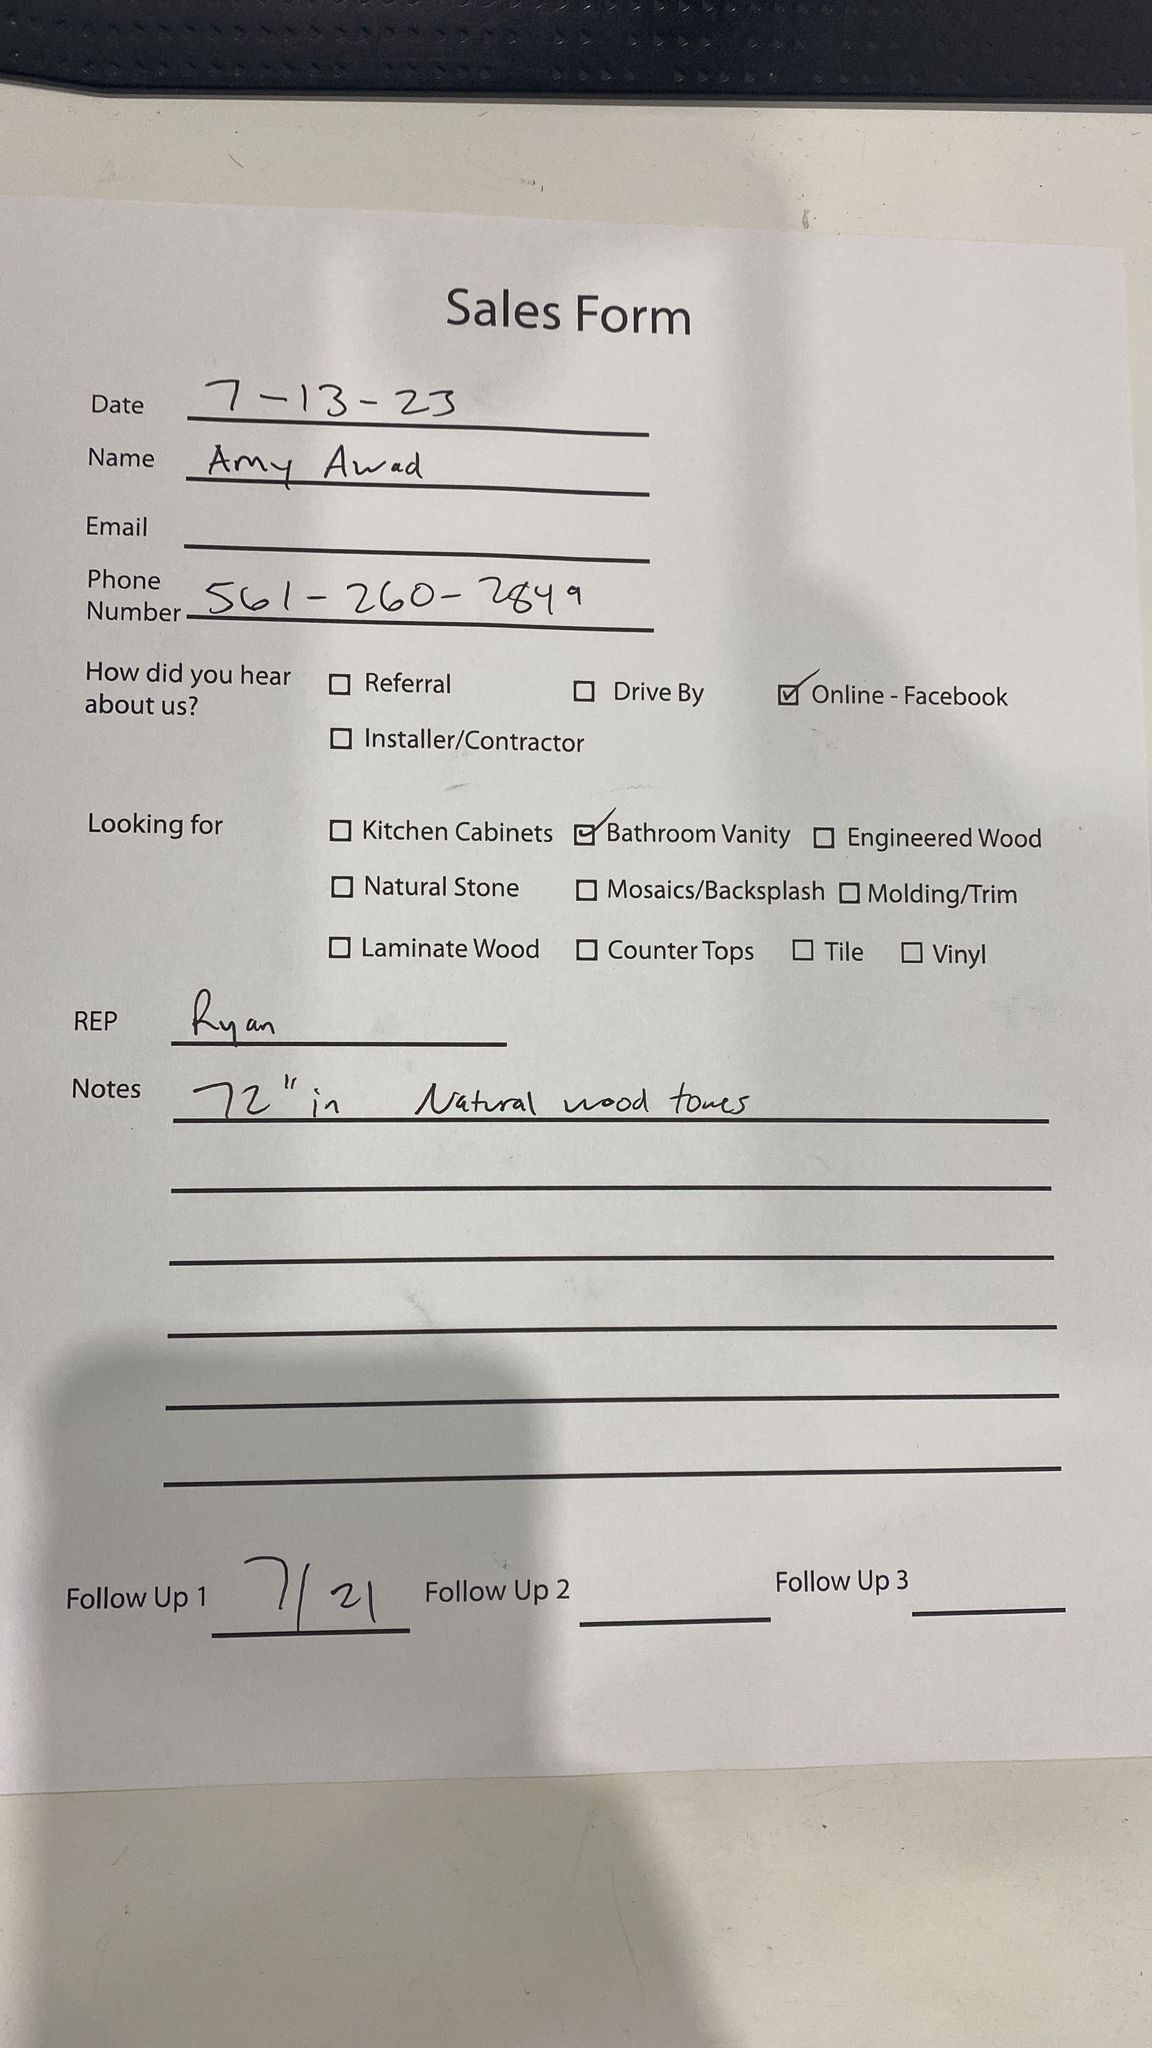 Sales Form
Date 7-13-23
Name Amy Awad
Email
Phone
Number 561-260-2849
How did you hear ☐ Referral ☐ Drive By ☑ Online - Facebook
about us?
☐ Installer/Contractor
Looking for ☐ Kitchen Cabinets ☑ Bathroom Vanity ☐ Engineered Wood
☐ Natural Stone ☐ Mosaics/Backsplash ☐ Molding/Trim
☐ Laminate Wood ☐ Counter Tops ☐ Tile ☐ Vinyl
REP Ryan
Notes 72" in Natural wood tones
Follow Up 1 7/21 Follow Up 2 Follow Up 3